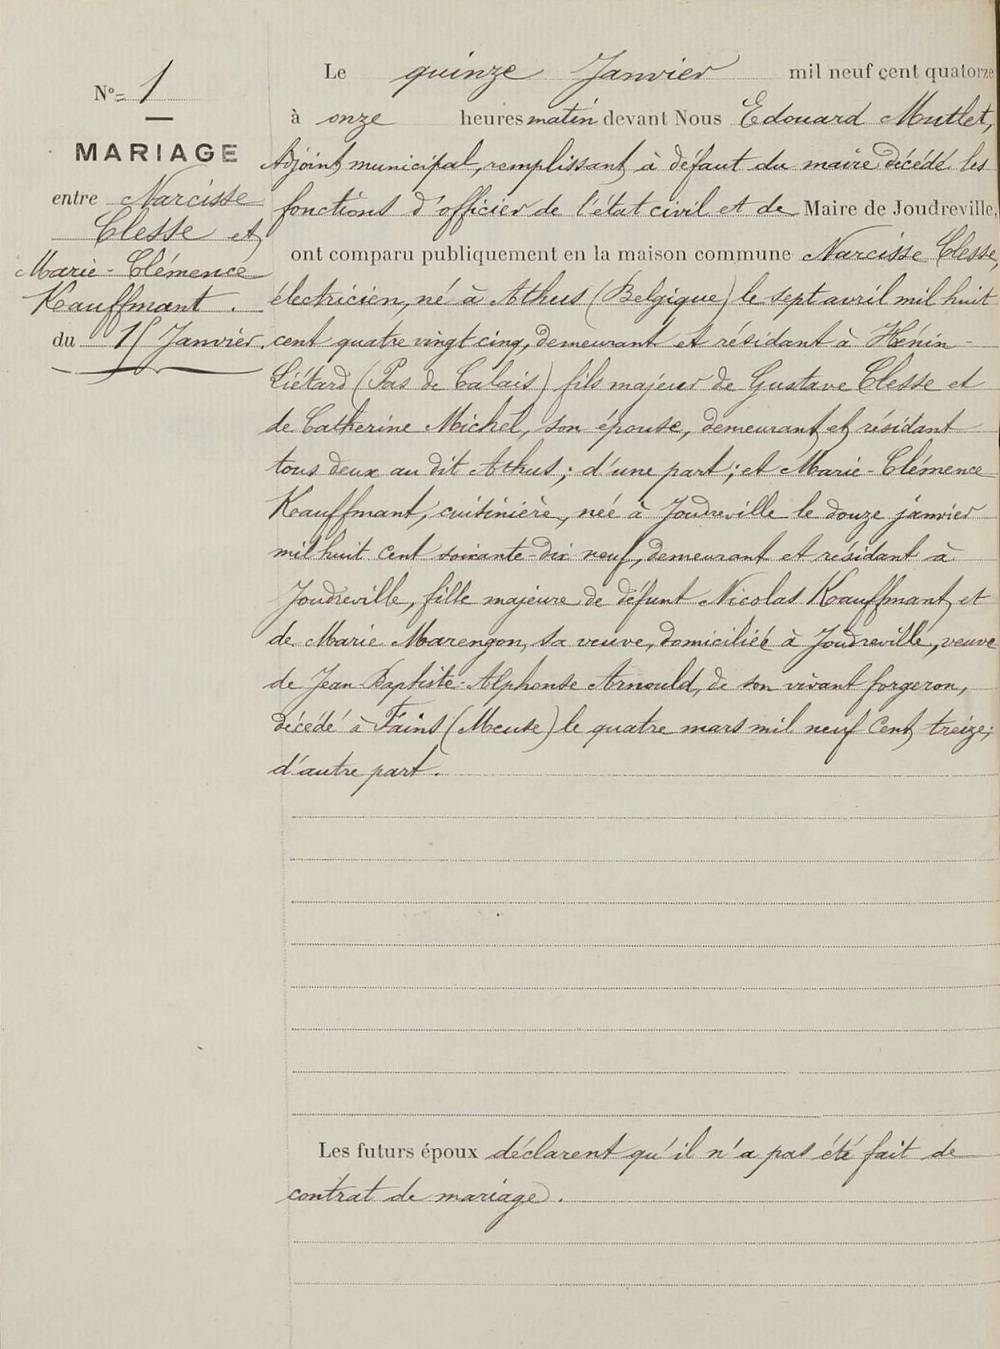 N° 1
MARIAGE
entre Narcisse
Clesse et
Marie-Clémence
Kauffmant.
du 15 Janvier.
Le quinze Janvier mil neuf cent quatorze
à onze heures matin devant Nous Edouard Mutlet,
Adjoint municipal, remplissant à défaut du maire décédé les
fonctions d'officier de l'état civil et de Maire de Joudreville,
ont comparu publiquement en la maison commune Narcisse Clesse,
électricien, né à Athus (Belgique) le sept avril mil huit
cent quatre vingt cinq, demeurant et résidant à Hénin-
Liétard (Pas de Calais) fils majeur de Gustave Clesse et
de Catherine Michel, son épouse, demeurant et résidant
tous deux au dit Athus; d'une part; et Marie-Clémence
Kauffmant, cuisinière, née à Joudreville le douze janvier
mil huit cent soixante-dix neuf, demeurant et résidant à
Joudreville, fille majeure de défunt Nicolas Kauffmant et
de Marie Marengon, sa veuve, domiciliée à Joudreville, veuve
de Jean-Baptiste-Alphonse Arnould, de son vivant forgeron,
décédé à Fains (Meuse) le quatre mars mil neuf cent treize;
d'autre part.
Les futurs époux déclarent qu'il n'a pas été fait de
contrat de mariage.